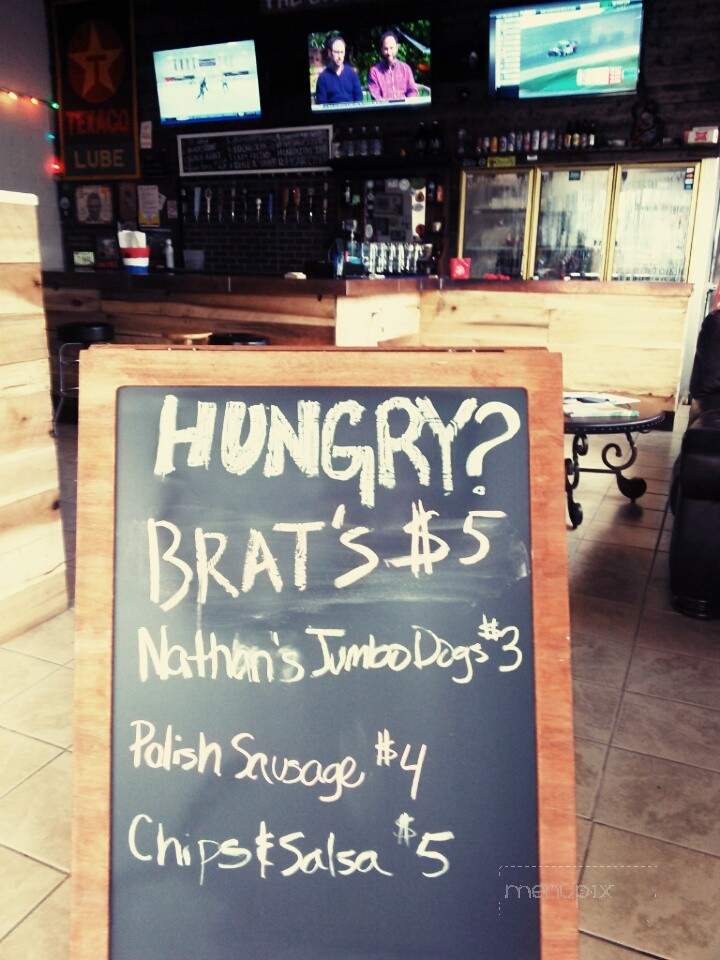 TEXACO
LUBE
HUNGRY?
BRAT'S $5
Nathan's Jumbo Dogs $3
Polish Sausage $4
Chips & Salsa $5
menupix